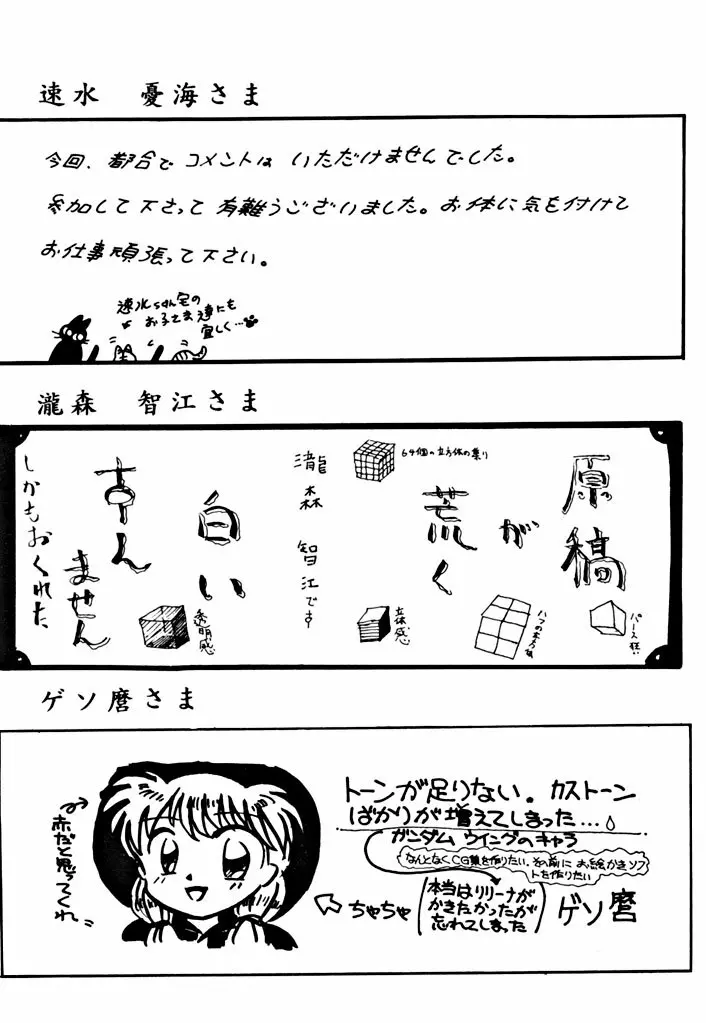 速水　憂海さま
今回、都合で コメントは いただけませんでした。
参加して下さって 有難うございました。お体に気を付けて
お仕事頑張って下さい。
速水ちゃん宅の
お子さま達にも
宜しく…
瀧森　智江さま
原稿
が
荒く
64個の立方体の集り
瀧森 智江です
白い
すん
ません
しかもおくれた
パース狂い
立体感
透明感
ゲソ麿さま
トーンが足りない。カストーン
ばかりが増えてしまった…
ガンダム ウイングのキャラ
なんとなくCG集を作りたい。その前に お絵かきソフ
トを作りたい
本当はリリーナが
かきたかったが
忘れてしまった
ゲソ麿
ちゃちゃ
赤だと思ってくれ。